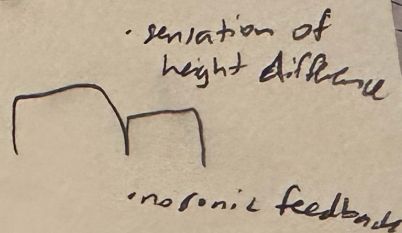 · sensation of
height difference
· no sonic feedback